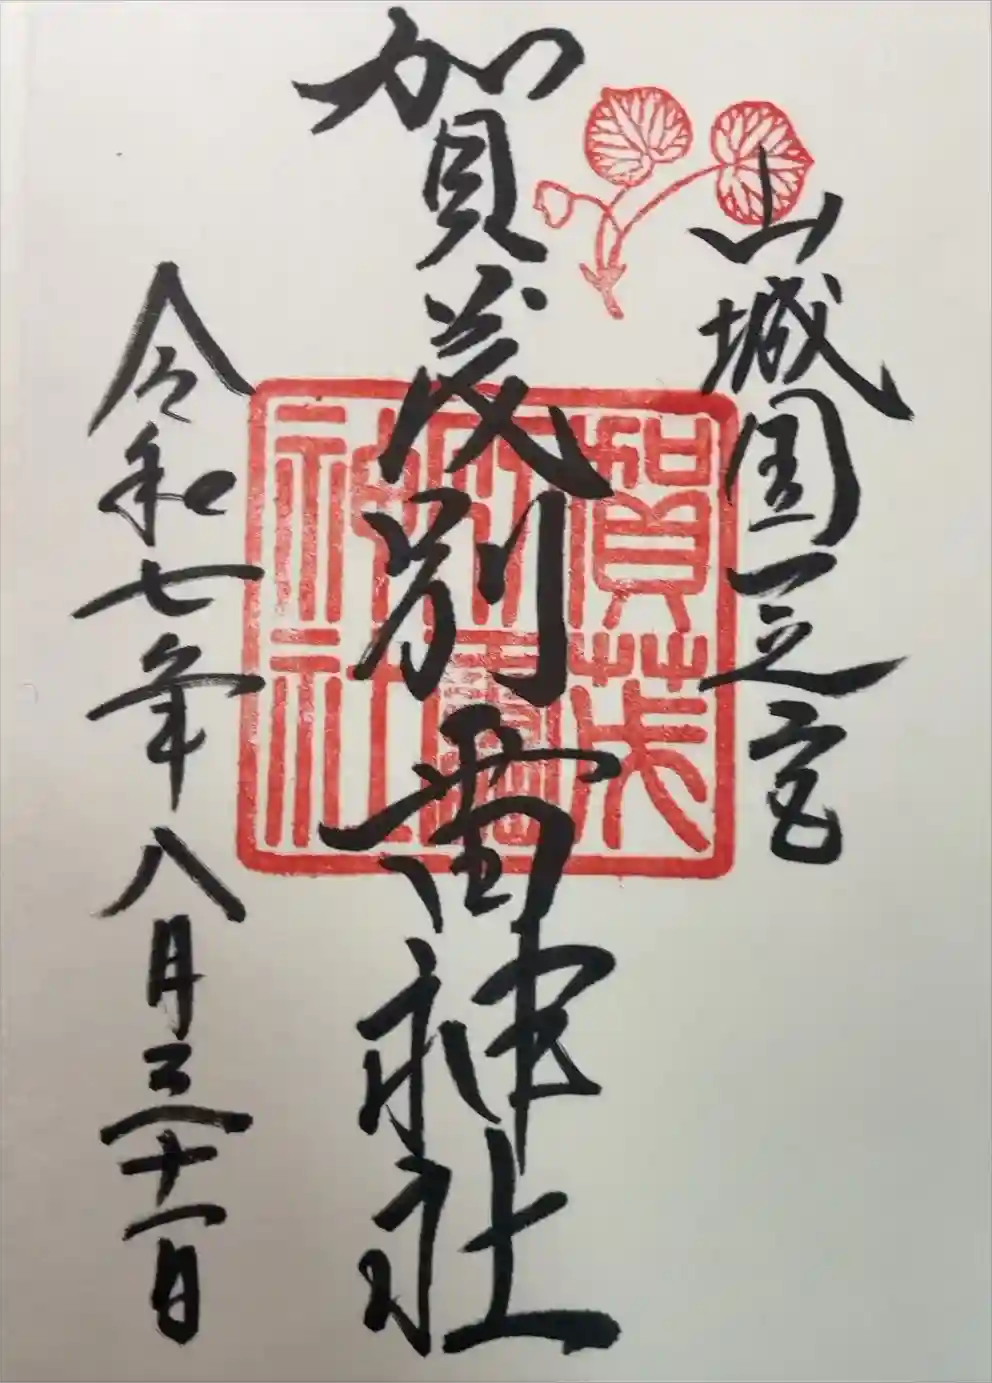 山城国一之宮
賀茂別雷神社
令和七年八月三十一日
賀茂
別雷
神社